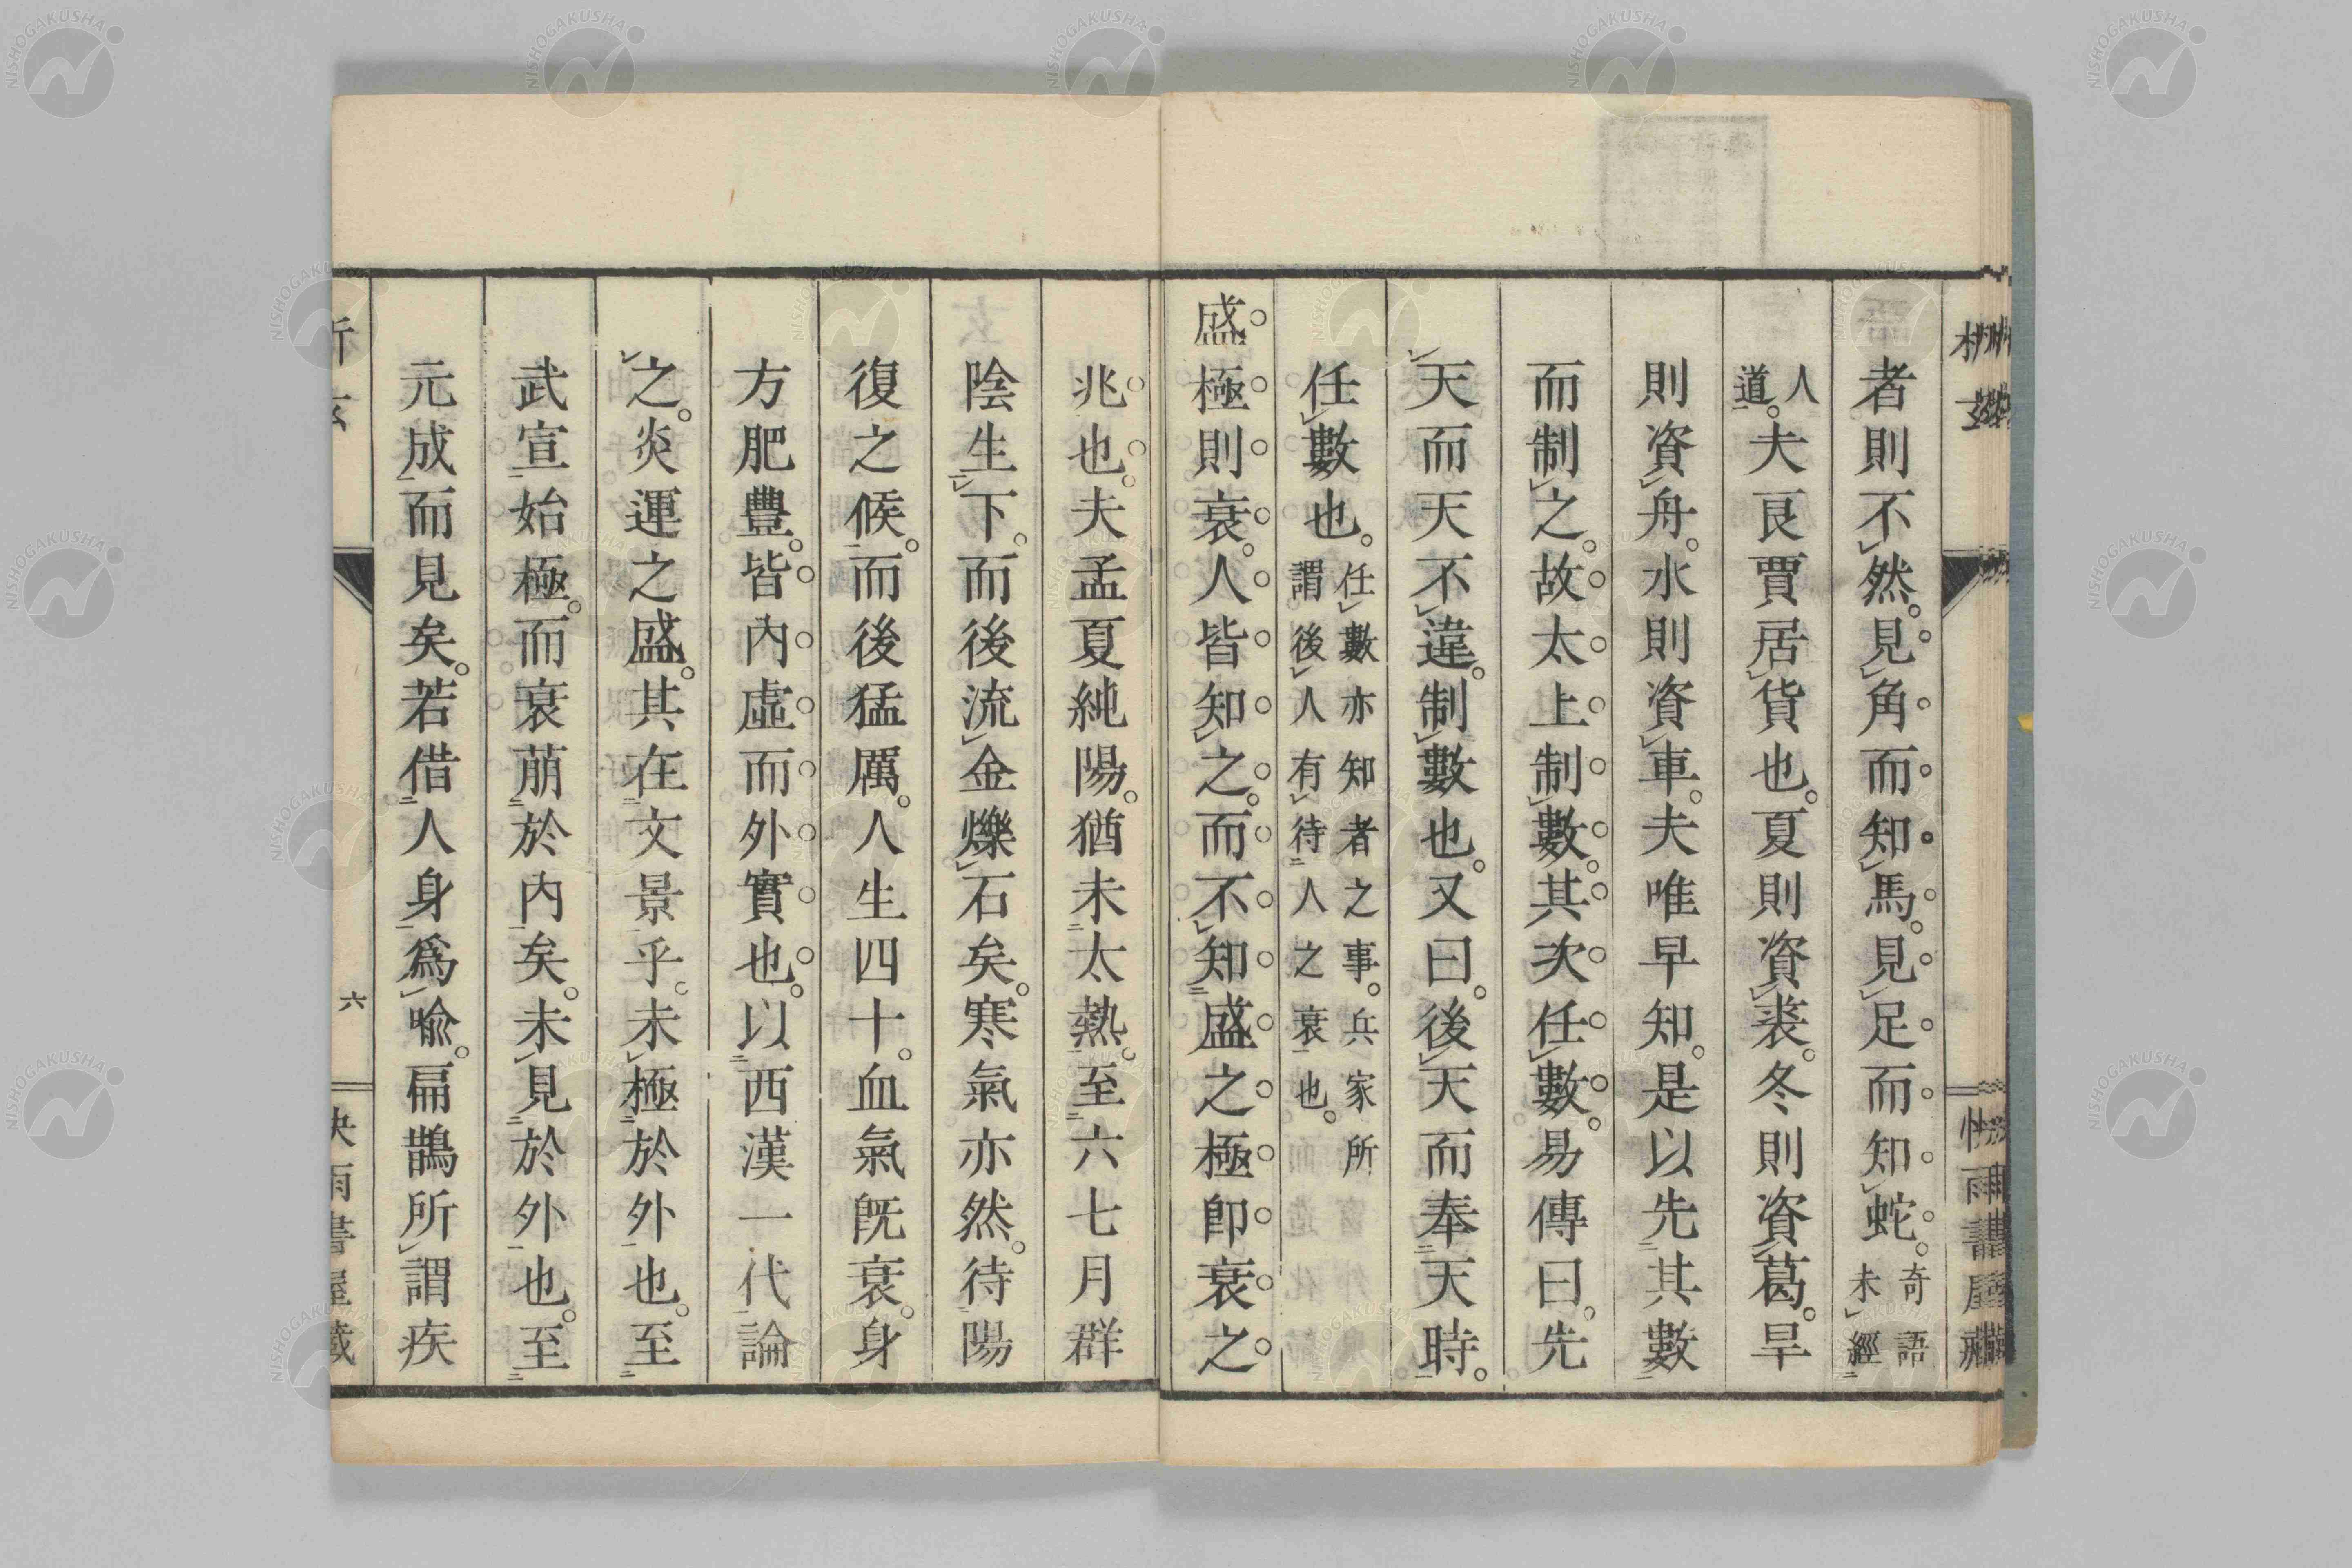 者則不然。見角而知馬。見足而知蛇。奇語未經
人道。夫良賈居貨也。夏則資裘。冬則資葛。旱
則資舟。水則資車。夫唯早知。是以先其數
而制之。故太上制數。其次任數。易傳曰。先
天而天不違。制數也。又曰。後天而奉天時。
任數也。任數亦知者之事。兵家所謂後人有待人之衰也。
盛極則衰。人皆知之。而不知盛之極卽衰之
兆也。夫孟夏純陽。猶未太熱。至六七月群
陰生下。而後流金爍石矣。寒氣亦然。待陽
復之候。而後猛厲。人生四十。血氣旣衰。身
方肥豐。皆內虛而外實也。以西漢一代論
之。炎運之盛。其在文景乎。未極於外也。至
武宣始極。而衰萠於內矣。未見於外也。至
元成而見矣。若借人身爲喩。扁鵲所謂疾
析玄
六
快雨書屋藏
NISHOGAKUSHA